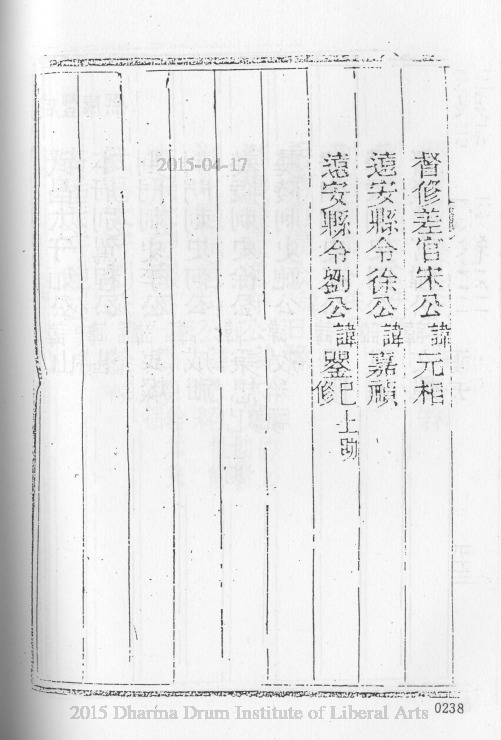 督修差官宋公諱元相
遠安縣令徐公諱嘉禎
遠安縣令劉公諱鋻已上助修
2015-04-17
2015 Dharma Drum Institute of Liberal Arts
0238